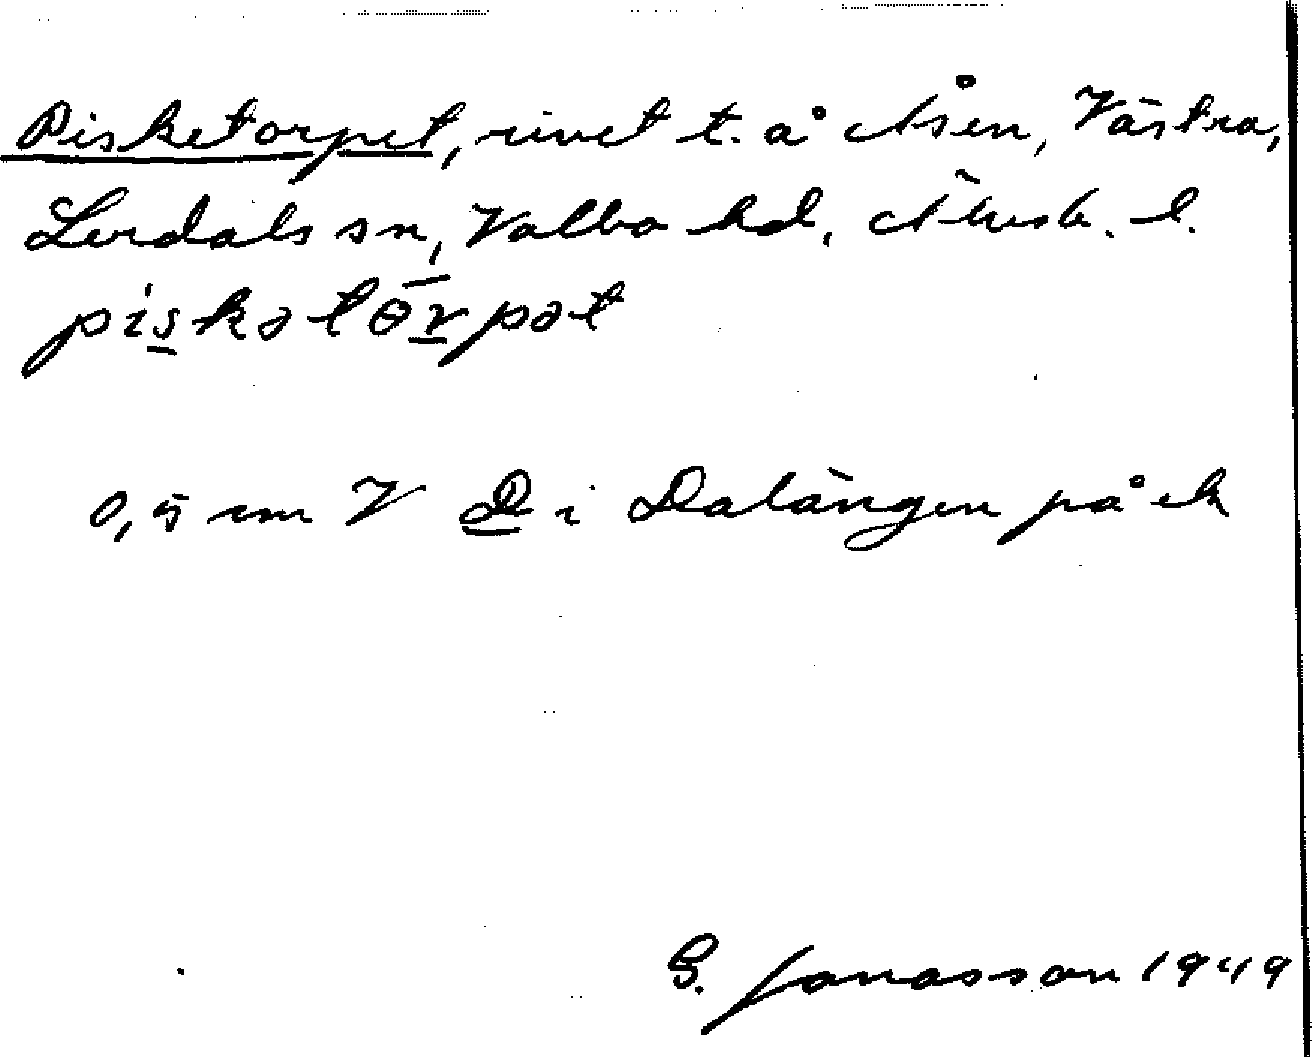 Pisketorpet, rivet t. å Åsen, Västra,
Lerdals sn, Valbo hd, Älvsb. l.
piskətɵrpət
0,5 cm V D i Dalängen på ek
G. Jonasson 1949